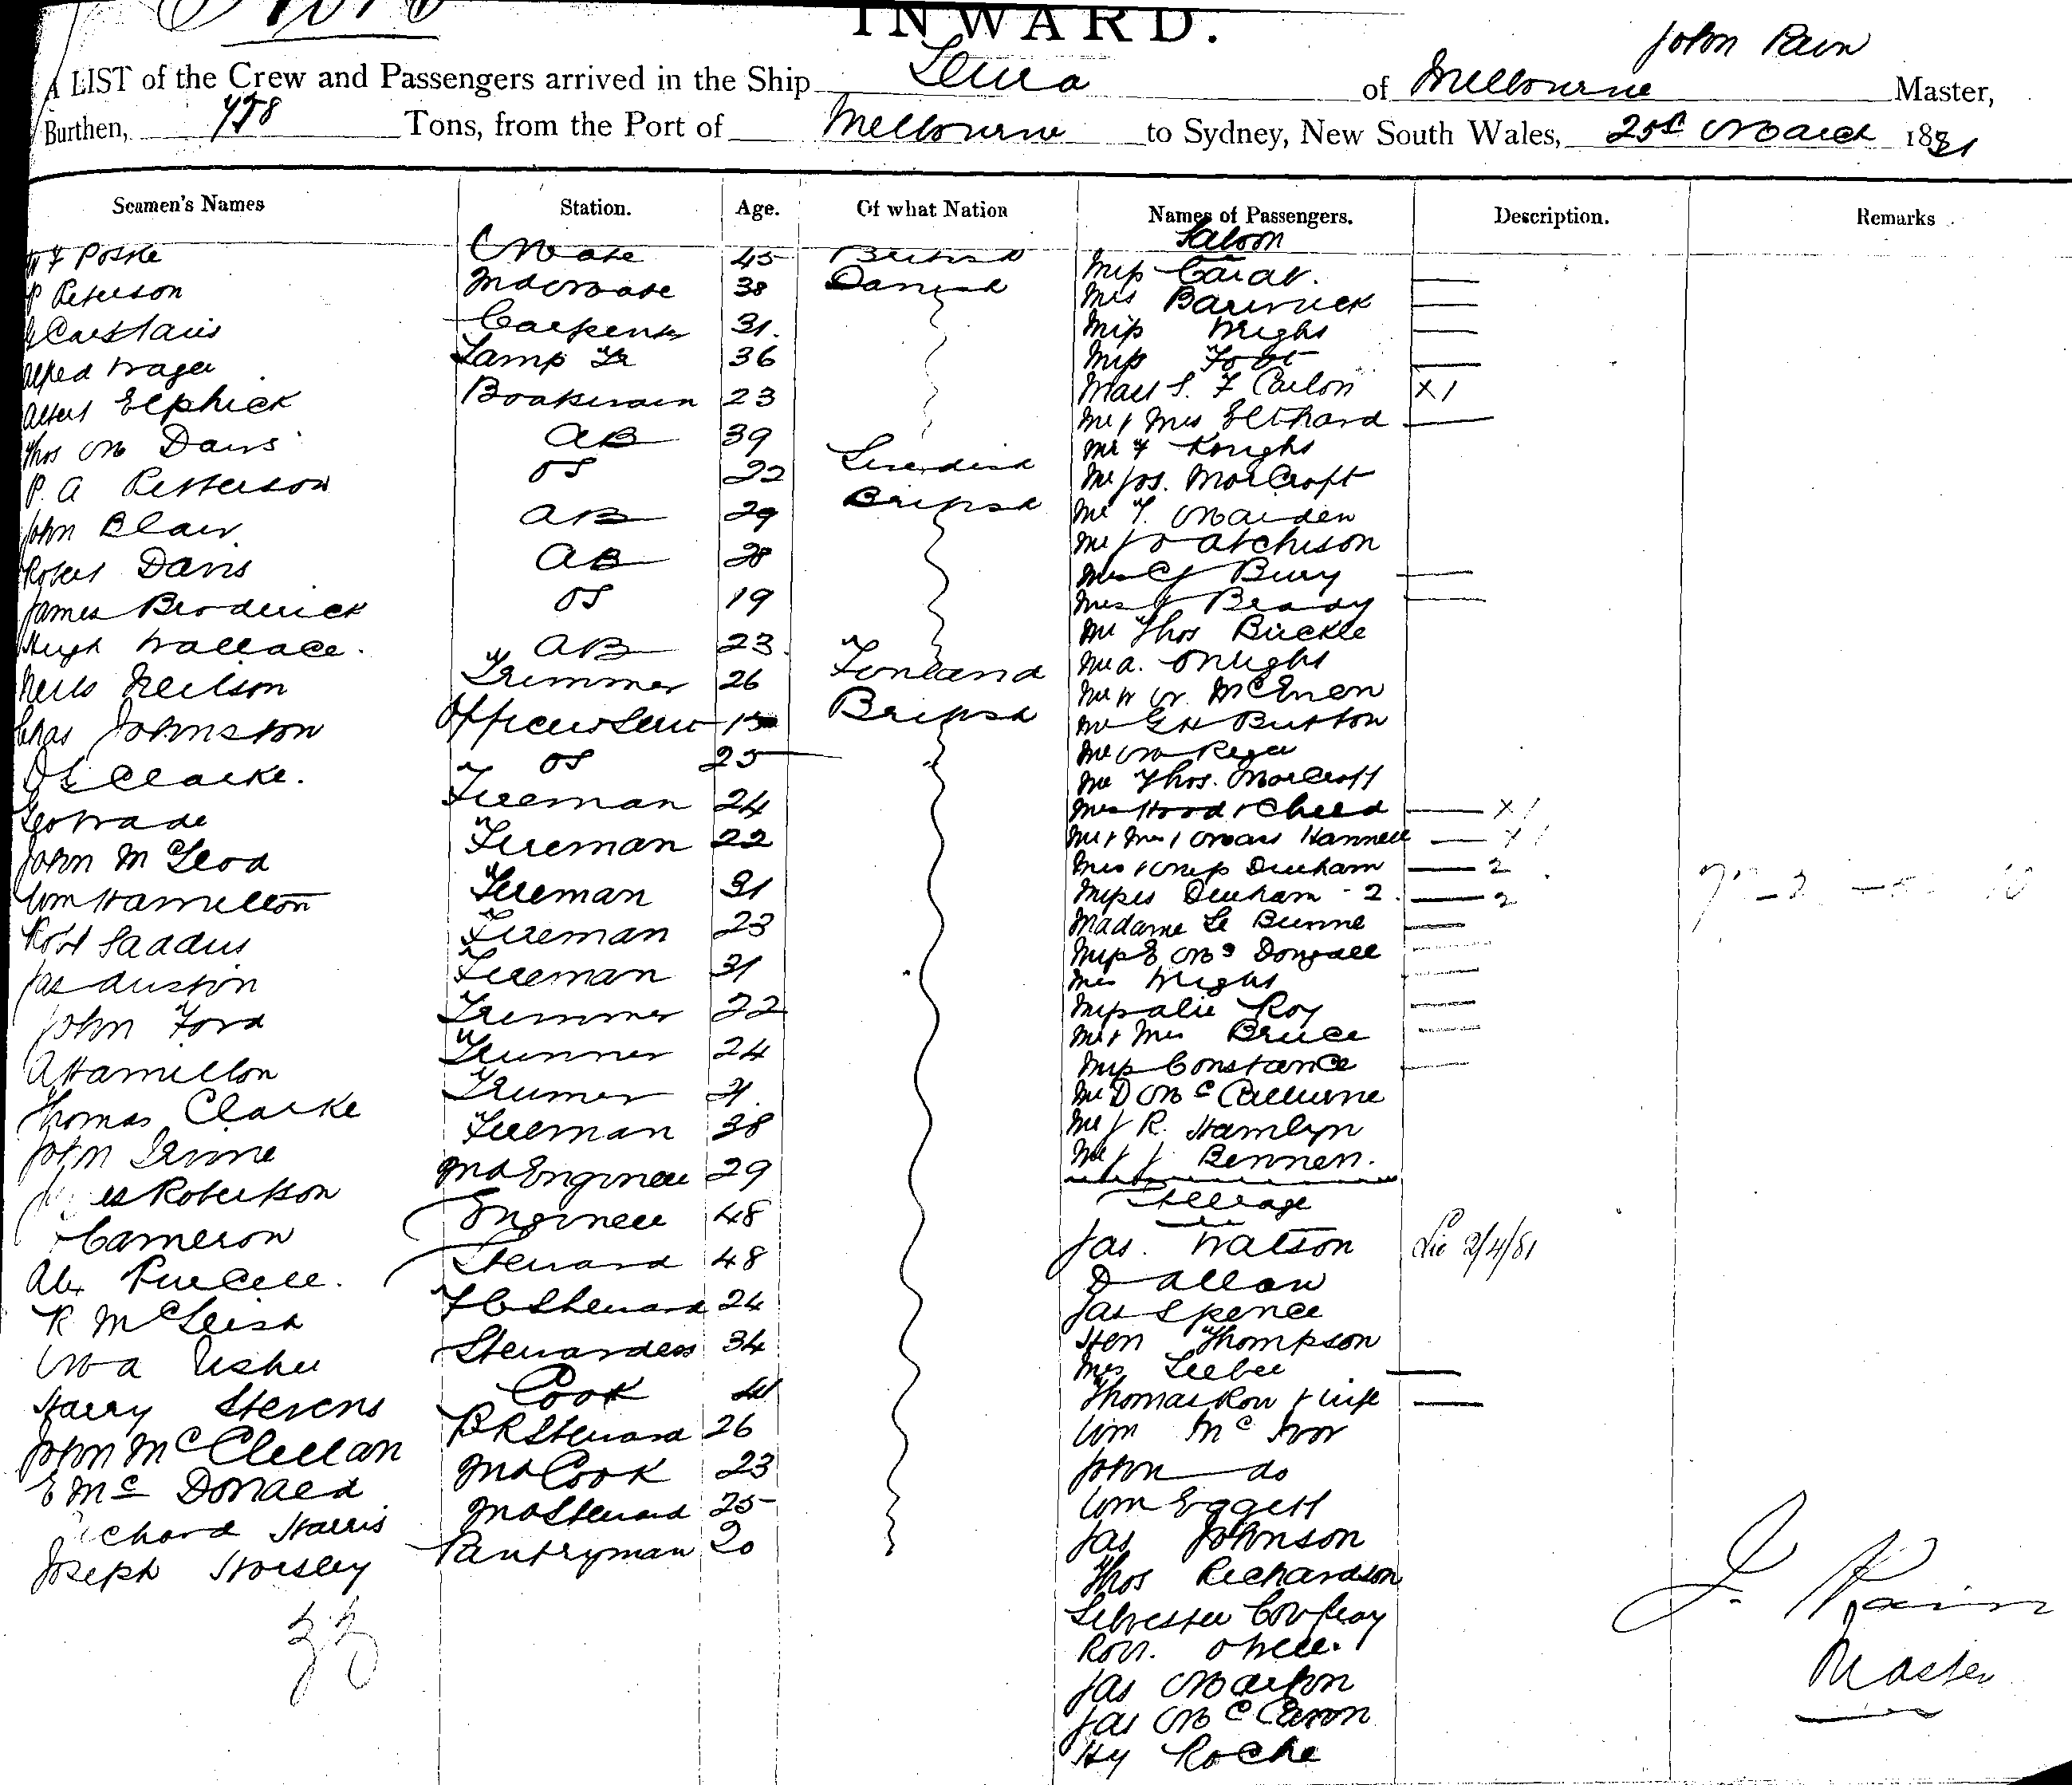 INWARD.
John Pain
A LIST of the Crew and Passengers arrived in the Ship of Melbourne Master,
Burthen, 458 Tons, from the Port of Melbourne to Sydney, New South Wales, 25th March 1881
Seamen's Names Station. Age. Of what Nation Names of Passengers. Description. Remarks
Saloon
Mate 45 British
P Peterson 2nd Mate 38 Danish Miss
Carpenter 31. Mrs Barwick
Alfred Wager Lamp Tr 36 Miss Wright
Albert Elphick Boatswain 23 Miss Foot
Thos M Davis AB 39 Mast S. F Carlon X1
P. A Petterson OS 22 Swedish Mr & Mrs
John Blair AB 29 British Mr F Knight
Robert Davis AB 28 Mr Jos. MorCroft
James Broderick OS 19 Mr T. Marden
Hugh Wallace. AB 23 Mr J Atchison
Neils Neilson Trimmer 26 Finland Mrs Bury
Chas Johnston Officers Serv 15 British Mrs J Brady
Clarke. OS 25 Mr Thos Buckle
Geo Wade Fireman 24 Mr A. Wright
John McLeod Fireman 22 Mr W W. McEwen
Wm Hamilton Fireman 31 Mr G H Button
Fireman 23 Mr
Jas Austin Fireman 31 Mr Thos. MorCroft
John Ford Trimmer 22 Mrs Hood & Child X1
A Hamilton Trimmer 24 Mr & Mrs & Mast Hannell X1
Thomas Clarke Trimmer 21. Mrs & Miss Denham 2
John Irvine Fireman 38 Misses Denham - 2. 2
Robertson 2nd Engineer 29 Madame Le Bunne
Cameron Engineer 48 Miss E Mc Dongall
Alex Purcell. Steward 48 Mrs Wright
R McLeish F C Steward 24 Miss Alie Roy
Usher Stewardess 34 Mr & Mrs Bruce
Harry Stevens Cook 41 Miss Constance
John McClellan B R Steward 26 Mr D Mc
E Mc Donald 2nd Cook 23 Mr J R. Hamlyn
Richard Harris 2nd Steward 25 Mr J J. Bennett.
Joseph Horsley Pantryman 20
33
Steerage
Jas. Watson 2/4/81
D Allan
Jas Spence
Hen Thompson
Mrs
Thomas Row & wife
Wm Mc Ivor
John do
Wm Eggett
Jas Johnson
Thos Richardson
Silvester
Robt. O'Neill.
Jas Martin
Jas
Hy Roche
J. Pain
Master